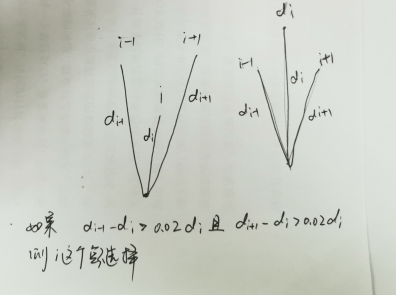 i-1 i+1
i
d_{i-1} d_i d_{i+1}
d_i
i-1 i+1
d_i
d_{i-1} d_{i+1}
如果 d_{i-1}-d_i>0.02d_i 且 d_{i+1}-d_i>0.02d_i
则 i这个 选择